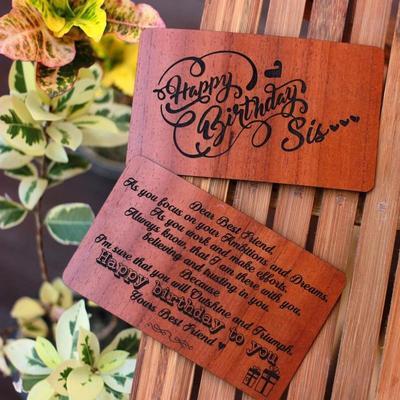 Happy
Birthday
Sis
Dear Best Friend,
As you focus on your Ambitions and Dreams,
As you work and make efforts,
Always know, that I am there with you,
believing and trusting in you.
Because
I'm sure that you will Outshine and Triumph.
Happy birthday to you
Yours Best Friend